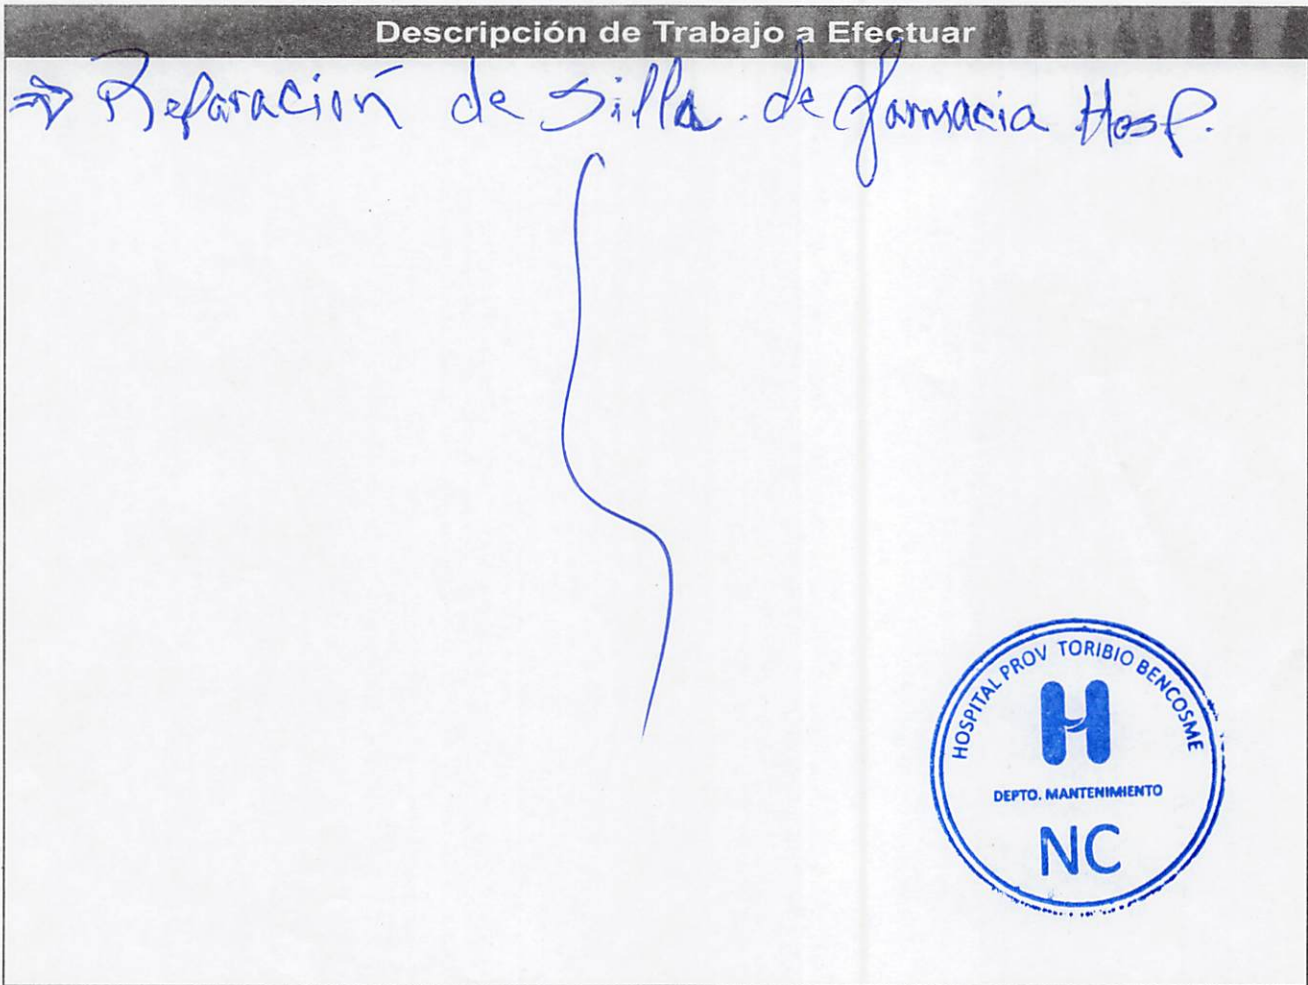 Descripción de Trabajo a Efectuar
⇒ Reparación de Silla de farmacia Hosp.
HOSPITAL PROV TORIBIO BENCOSME
H
DEPTO. MANTENIMIENTO
NC